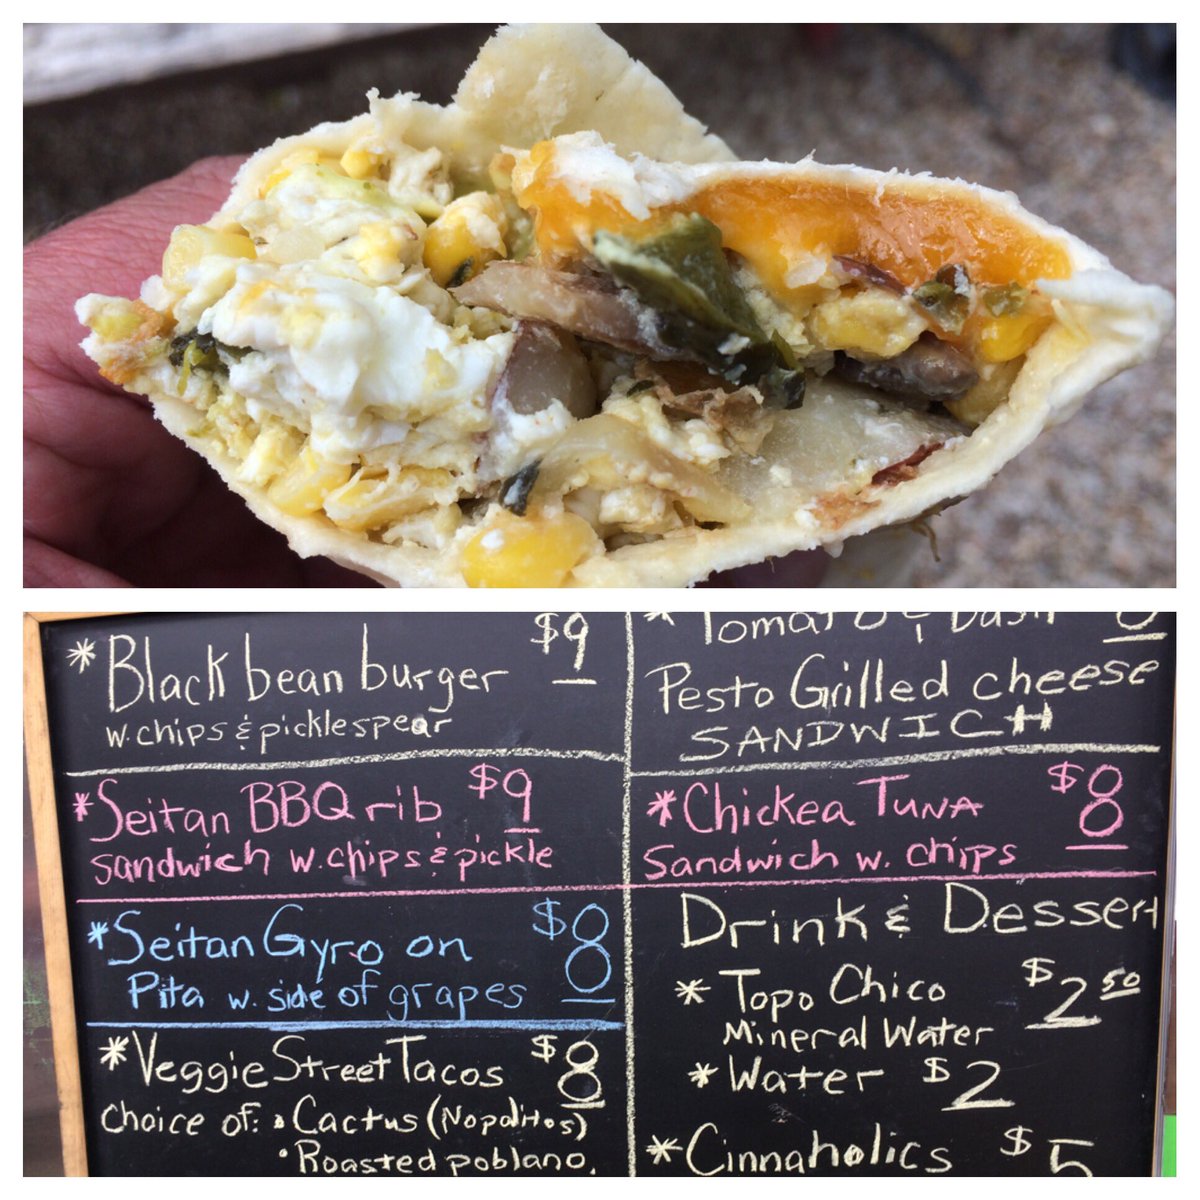 * Black bean burger $9
w. chips & pickle spear
* Seitan BBQ rib $9
sandwich w. chips & pickle
* Seitan Gyro on $8
Pita w. side of grapes
* Veggie Street Tacos $8
choice of: • Cactus (Nopalitos)
• Roasted poblano,
* Tomato & Basil 8
Pesto Grilled cheese
SANDWICH
* Chickea Tuna $8
Sandwich w. chips
Drink & Dessert
* Topo Chico $2.50
Mineral Water
* Water $2
* Cinnaholics $5